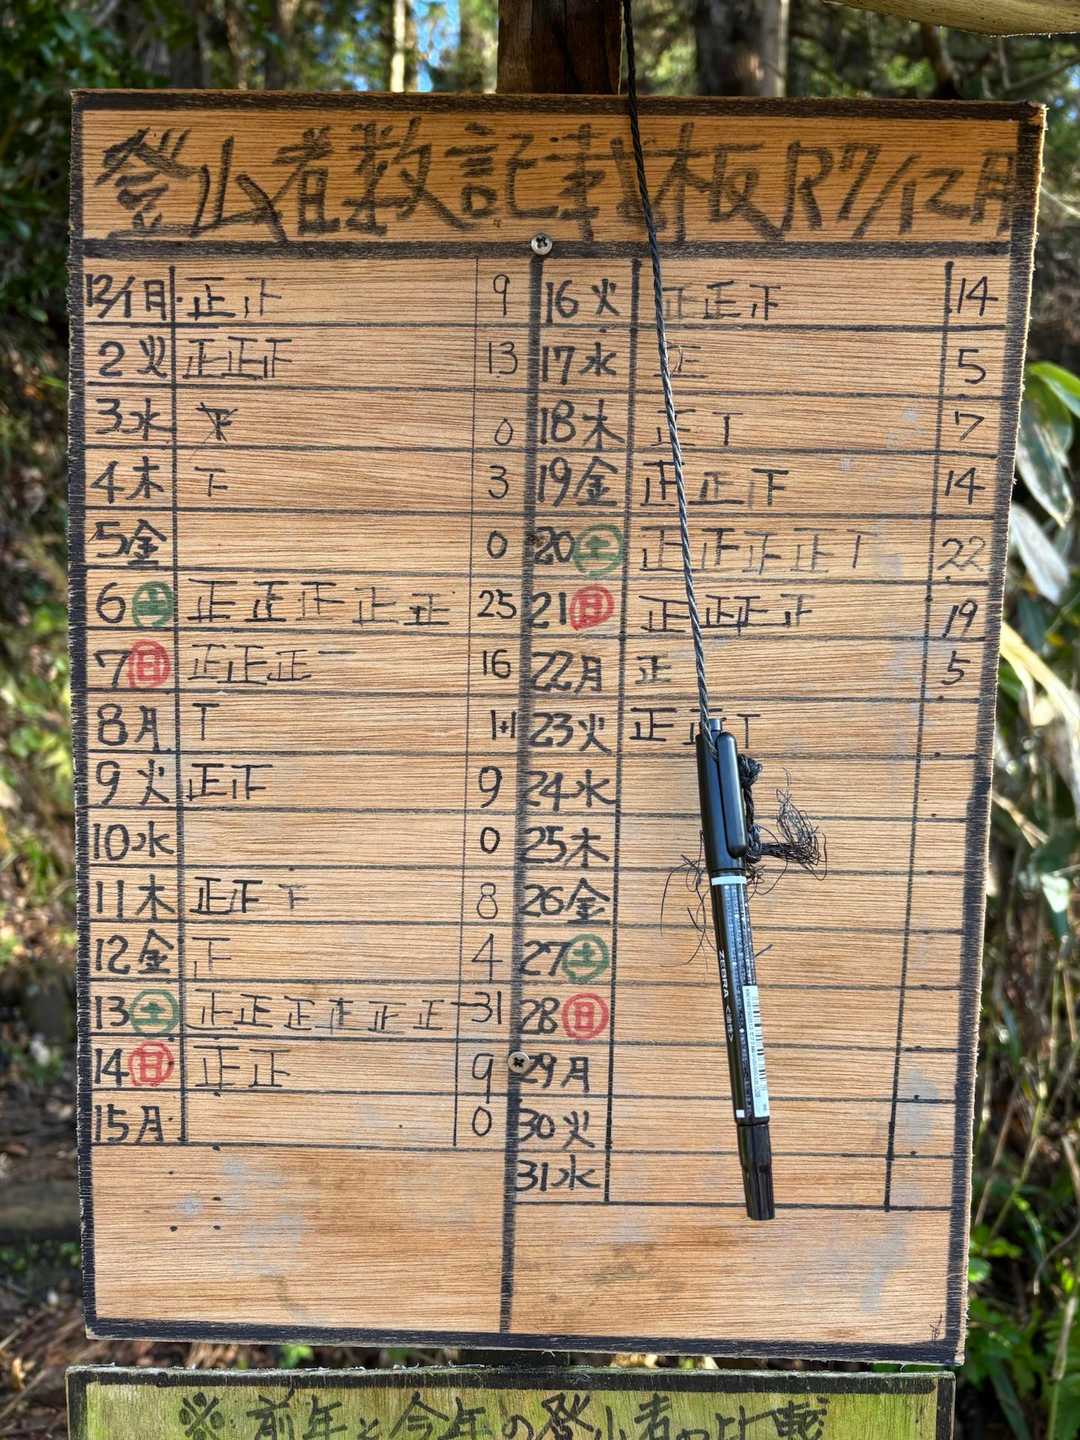 登山者数記載板R7/12月
12/1月 正正 9
2火 正正正 13
3水 0
4木 下 3
5金 0
6土 正正正正正 25
7日 正正正一 16
8月 丅 1+1
9火 正正 9
10水 0
11木 正正 8
12金 正 4
13土 正正正正正正一 31
14日 正正 9
15月 0
16火 正正正 14
17水 正 5
18木 正丅 7
19金 正正下 14
20土 正正正正丅 22
21日 正正正正 19
22月 正 5
23火 正正丅
24水
25木
26金
27土
28日
29月
30火
31水
ZEBRA
※前年と今年の登山者の比較